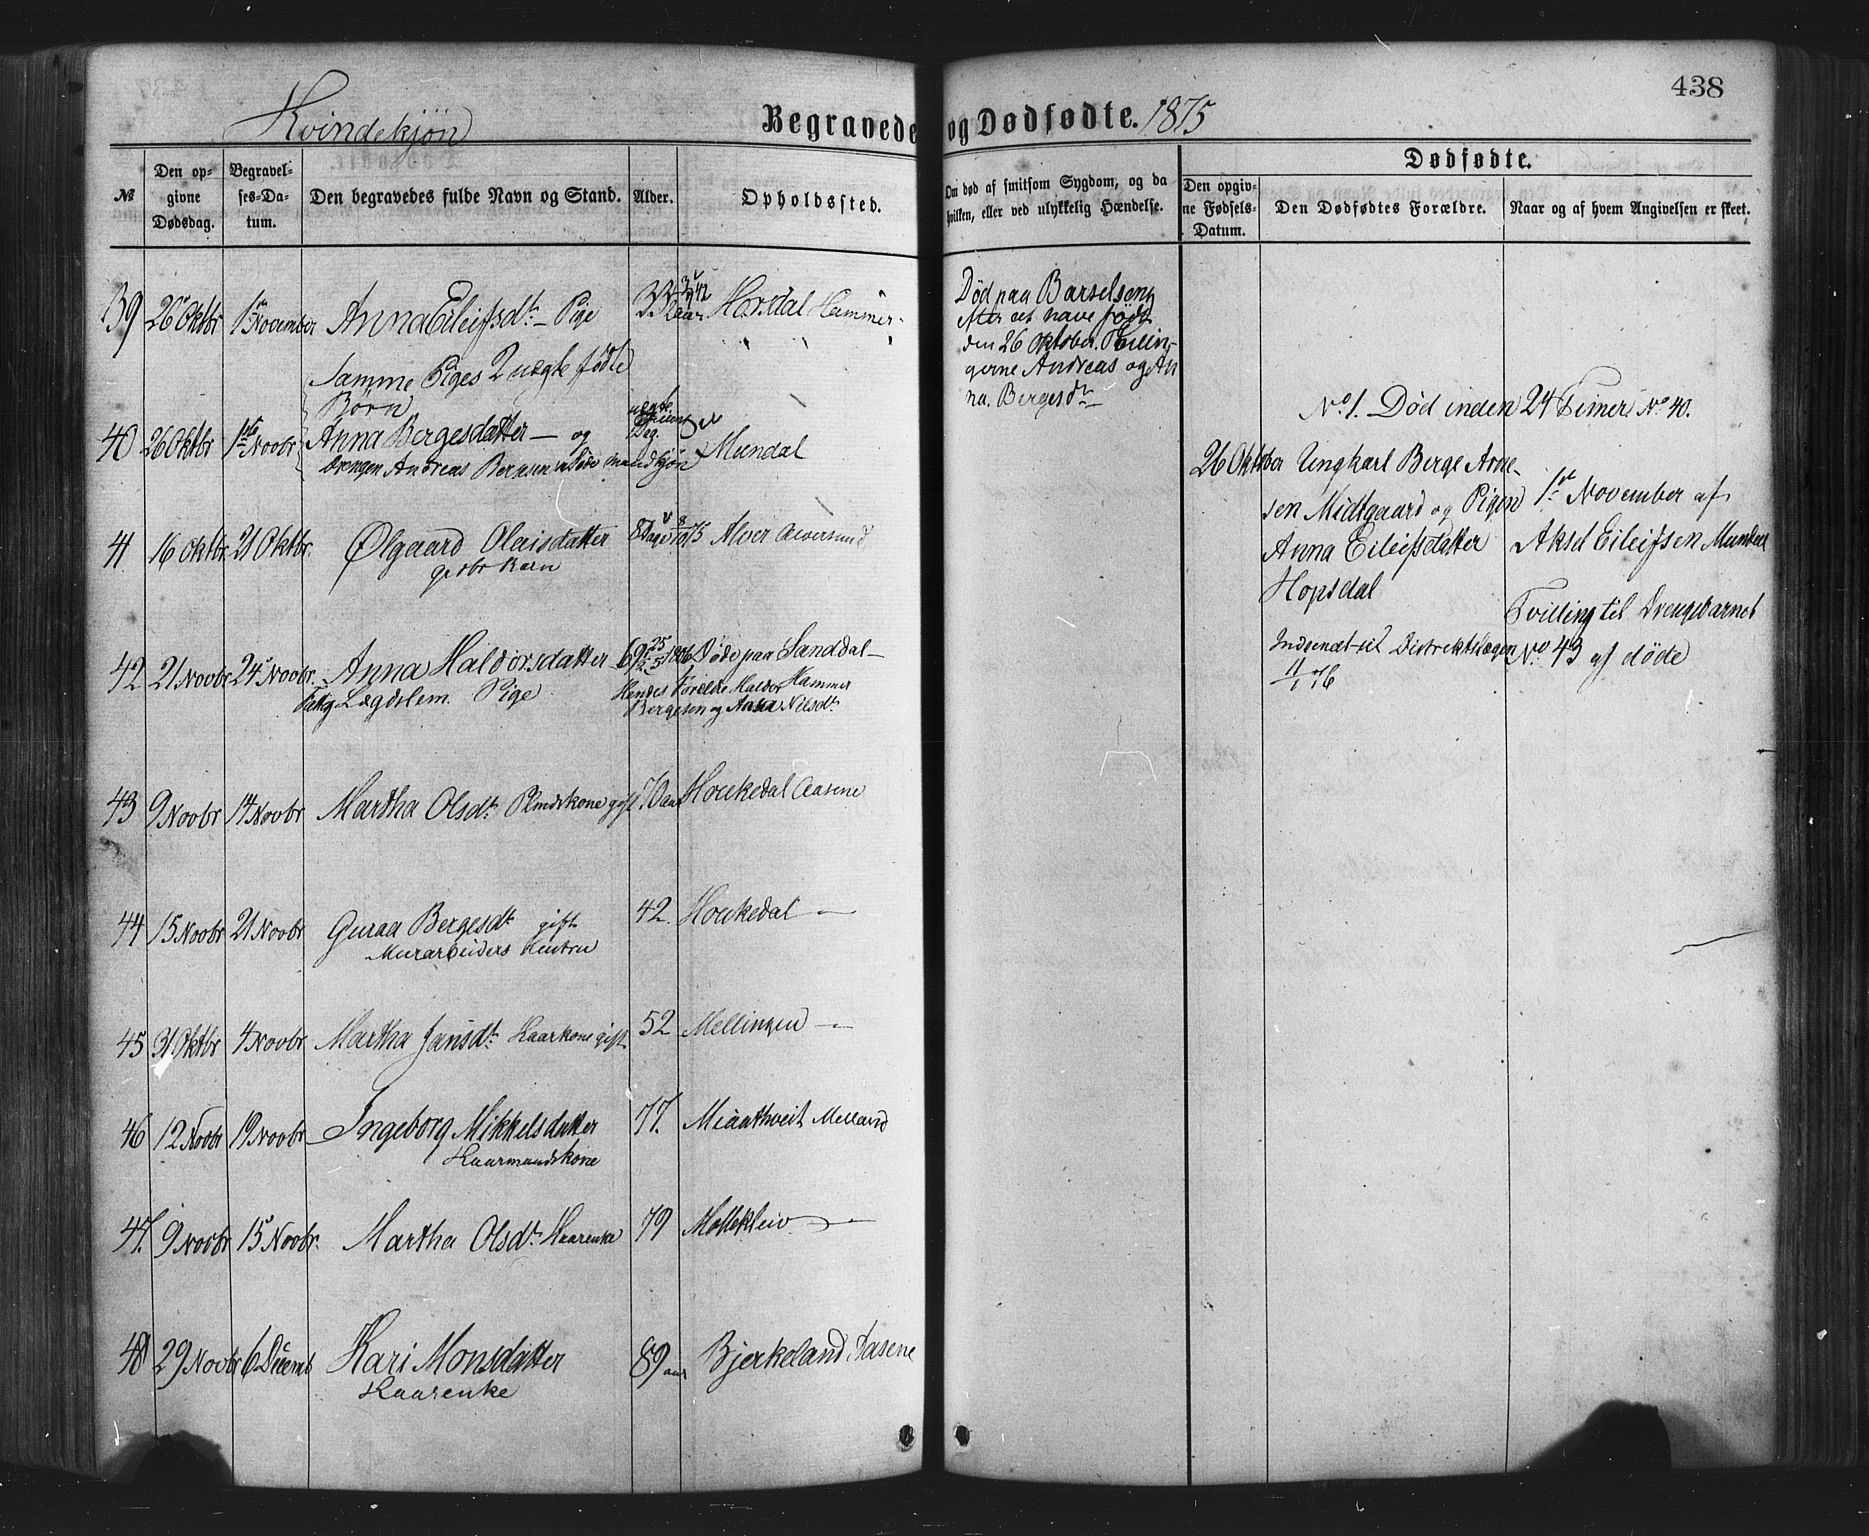 438
Kvindekjøn Begravede og Dødfødte. 1875
№
Den opgivne Dødsdag.
Begravelses-Datum.
Den begravedes fulde Navn og Stand.
Alder.
Opholdssted.
Om død af smitsom Sygdom, og da hvilken, eller ved ulykkelig Hændelse.
Dødfødte.
Den opgivne Fødsels-Datum.
Den Dødfødtes Forældre.
Naar og af hvem Angivelsen er skeet.
39 26 Oktbr 1 November Anna Eileifsdt. Pige 33 aar Hopsdal Hammer
Død paa Barselseng
efter at have født
den 26 Oktober Tvillin-
gerne Andreas og An
na. Bergesdt
Samme Piges 2 uægte fødte
Børn
No 1. Død inden 24 Timer No 40.
40 26 Oktbr 1ste Novbr Anna Bergesdatter — og Mundal
Drengen Andreas Mandkjøn
26 Oktober Ungkarl Berge Arne-
sen Midtgaard og Pigen
Anna Eileifsdatter
Hopsdal
Indsendt til Distriktslægen
11/1 76
1ste November af
Aksel Eileifsen Mundal
Tvilling til Drengebarnet
No 43 af døde
41 16 Oktbr 21 Oktbr. Ølgaard Olaisdatter 8 Dage 8/10 75 Alver Alversund
Barn
42 21 Novbr 24 Novbr. Anna Haldorsdatter 69 25/5 1806 Døde paa Sanddal
Fattig Lægdslem. Pige Hendes Foreldre Haldor Hammer
Bergesen og Anna Nilsdt.
43 9 Novbr 14 Novbr Martha Olsdt. gift 70 aar Houkedal Aasene
44 15 Novbr 21 Novbr Guraa Bergesdt gift 42. Houkedal —"—
Murarbeiders Hustru
45 31 Oktbr 4 Novbr Martha Jansdt. Kaarkone gift 52 Mellingen —"—
46 12 Novbr 19 Novbr Ingeborg Mikkelsdatter 77. Miaathveit Meland
Kaarmandskone
47. 9 Novbr 15 Novbr. Martha Olsdt. Kaarenke 79 Mollekleiv —"—
48 29 Novbr 6 Decemb Kari Monsdatter 89 aar Bjerkeland Aasene
Kaarenke